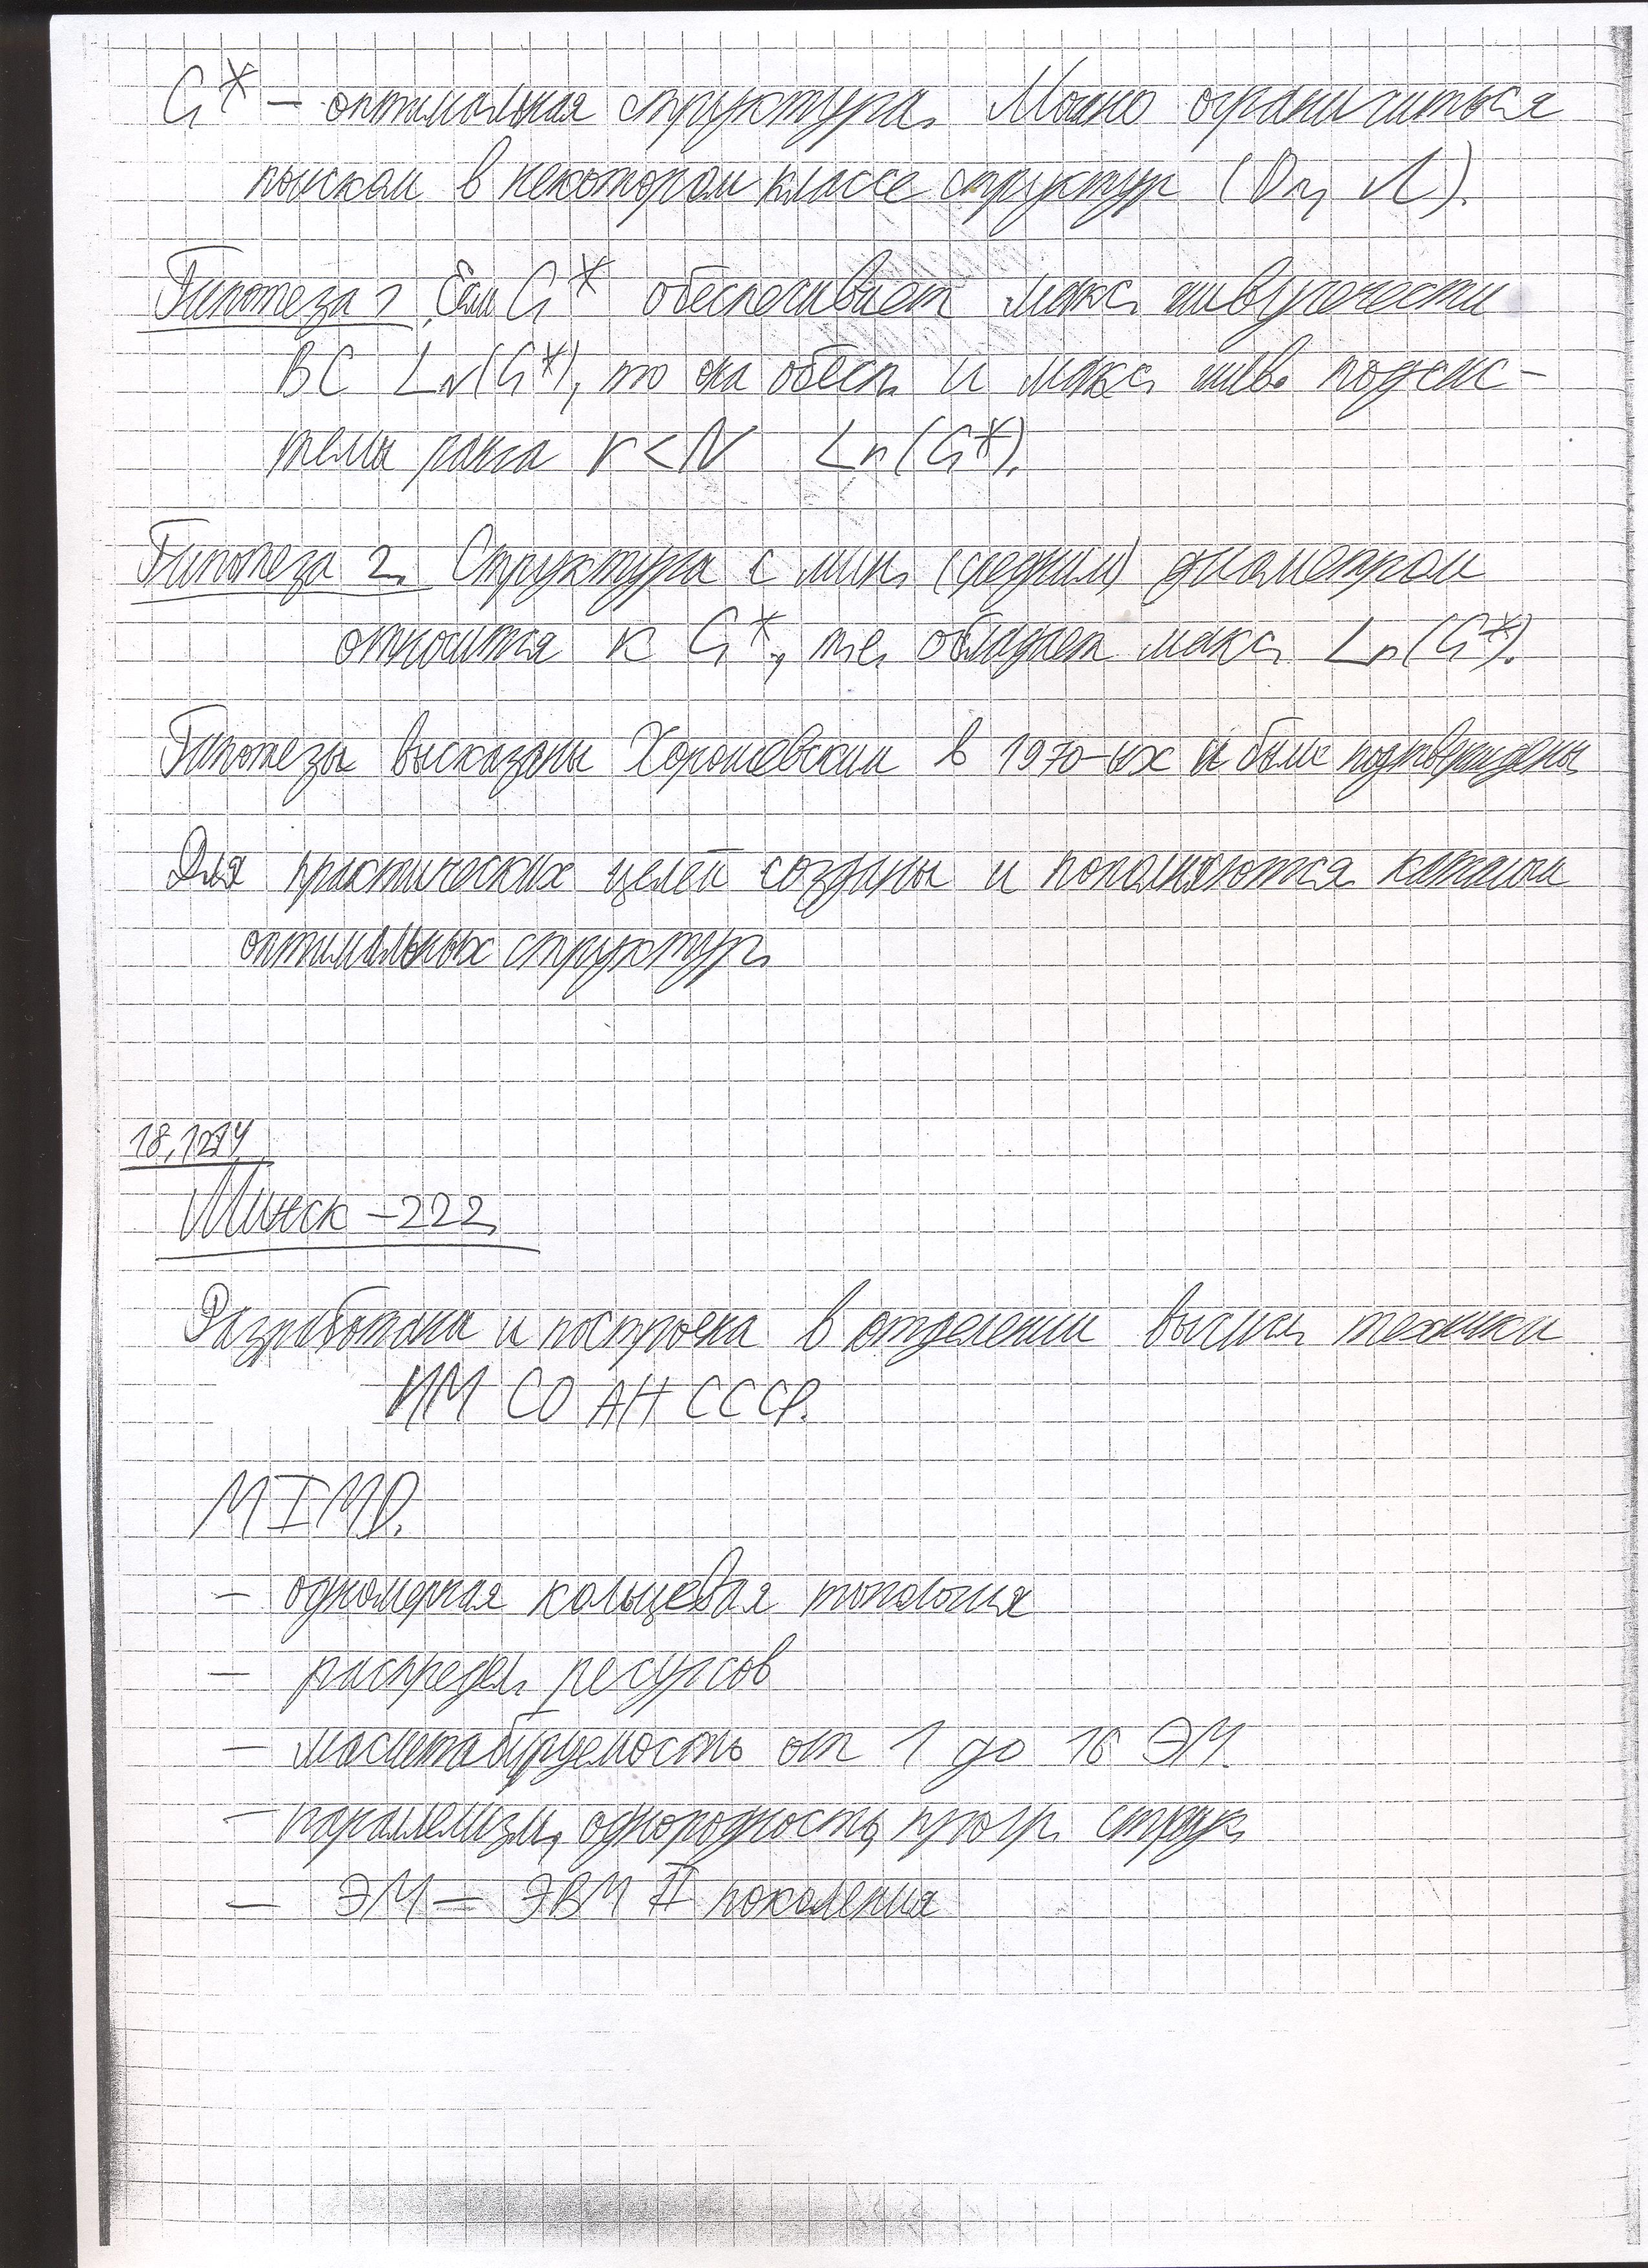 G* – оптимальная структура. Можно ограничиться
поиском в некотором классе структур (Dn, Λ).
Гипотеза 1 Если G* обеспечивает макс. живучести
ВС LN(G*), то она обесп. и макс. жив. подсис-
темы ранга r<N Lr(G*).
Гипотеза 2. Структура с мин. (средним) диаметром
относится к G*, т.е. обладает макс. Ln(G*).
Гипотезы высказаны Хорошевским в 1970-ых и были подтверждены
Для практических целей созданы и пополняются каталоги
оптимальных структур.
18.12.14
Минск-222
Разработана и построена в отделении вычисл. техники
ИМ СО АН СССР.
MIMD.
– одномерная кольцевая топология
– распредел. ресурсов
– масштабируемость от 1 до 16 ЭМ.
– параллелизм, однородность, прогр. струк.
– ЭМ – ЭВМ II поколения